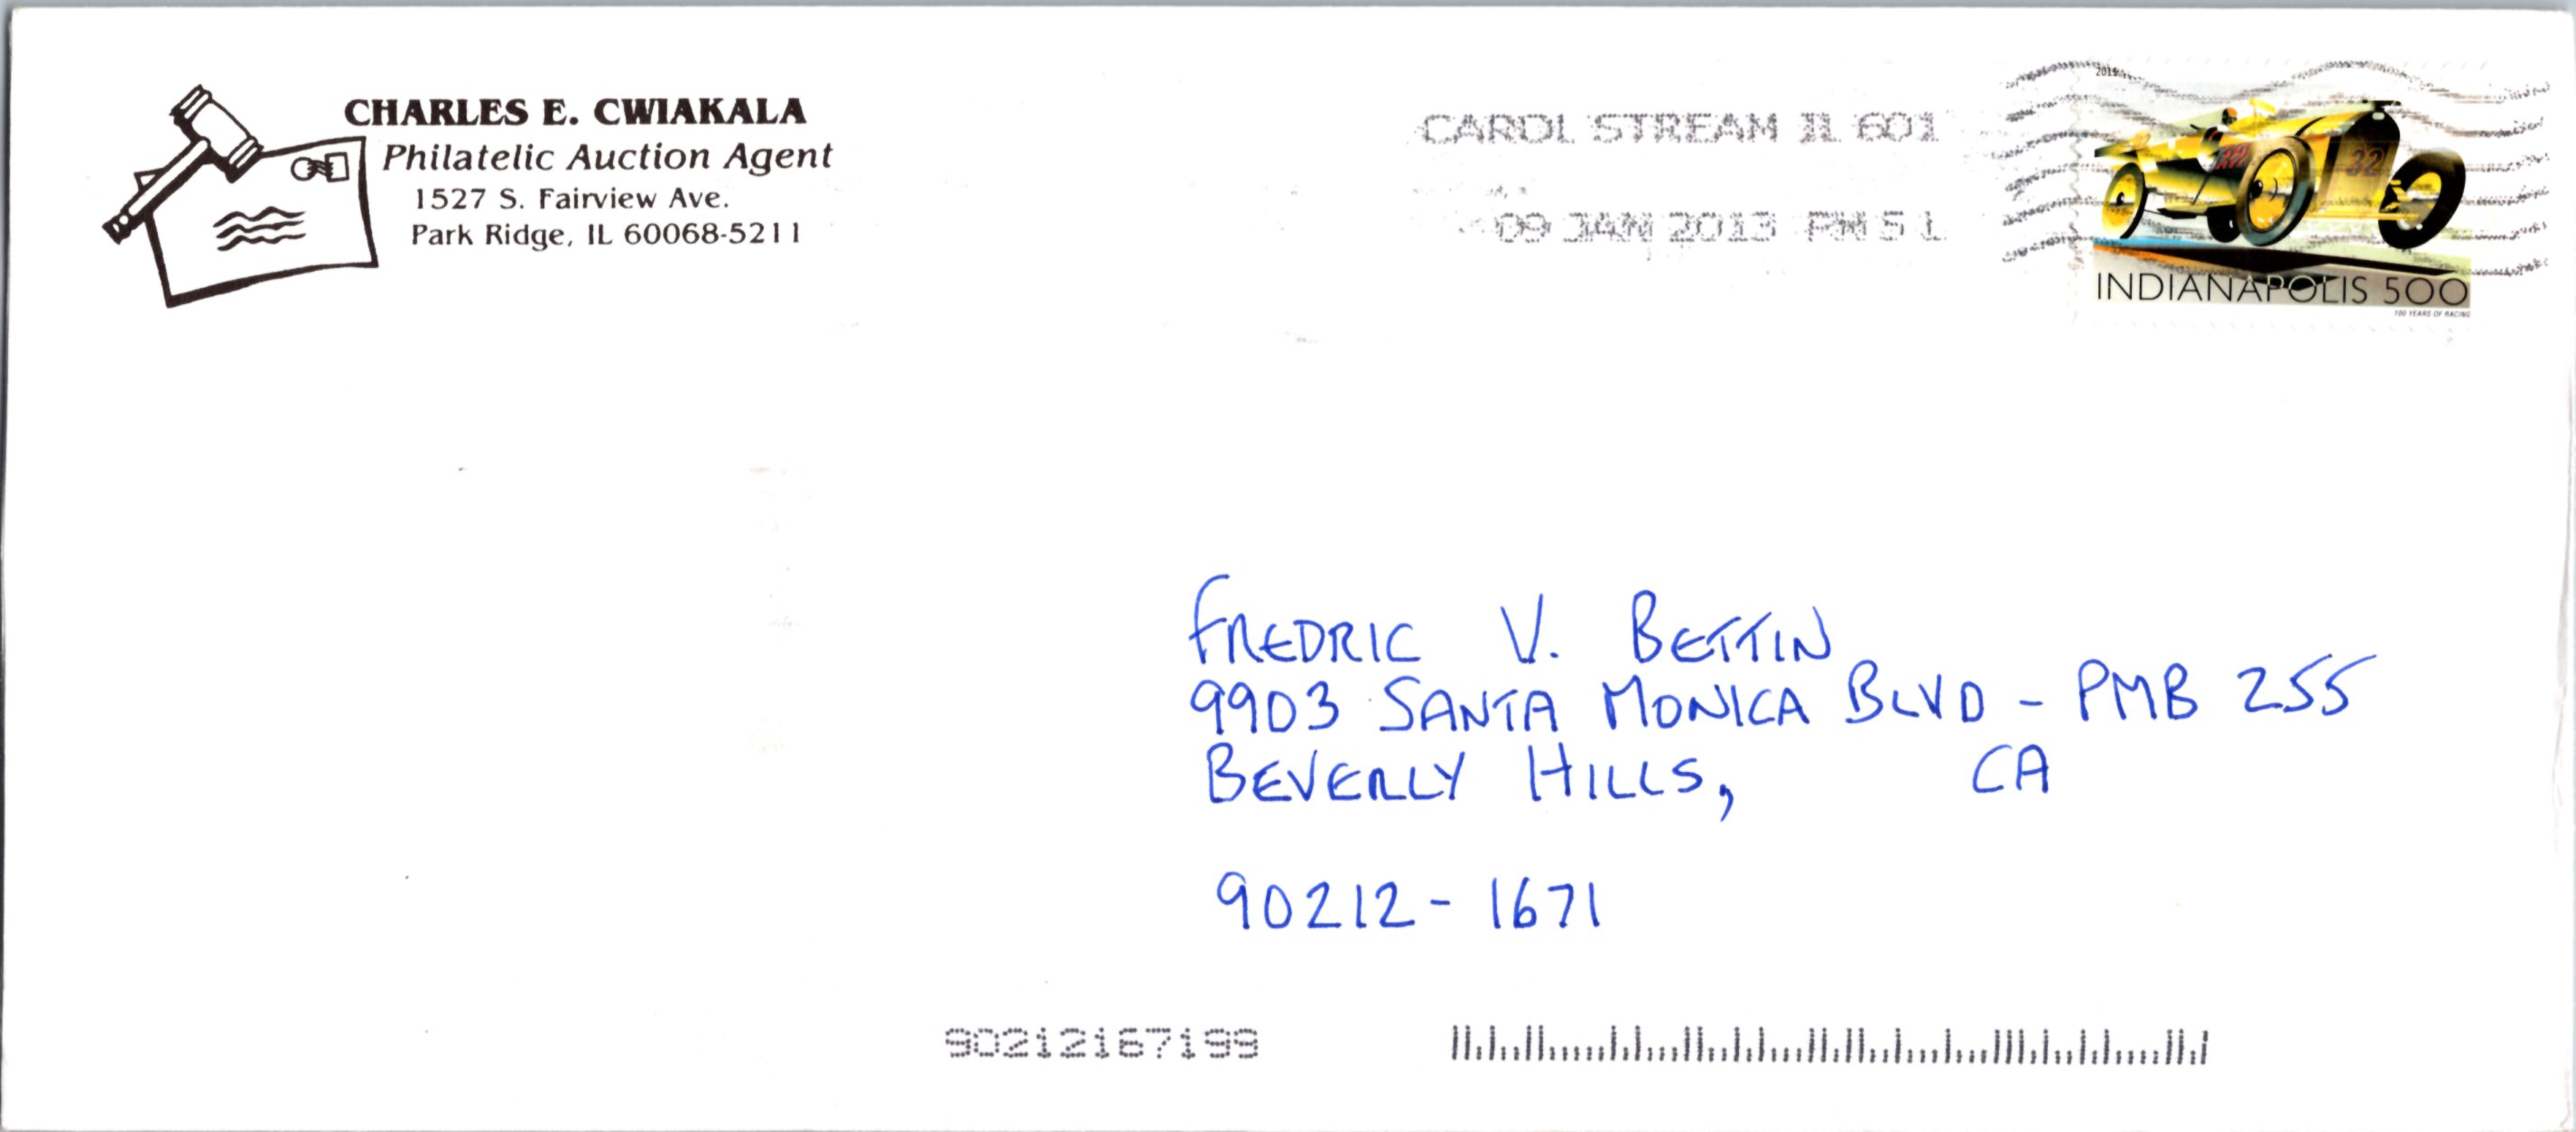 CHARLES E. CWIAKALA
Philatelic Auction Agent
1527 S. Fairview Ave.
Park Ridge, IL 60068-5211
CAROL STREAM IL 601
09 JAN 2013 PM 5 L
2011
32
32
INDIANAPOLIS 500
100 YEARS OF RACING
FREDRIC V. BETTIN
9903 SANTA MONICA BLVD - PMB 255
BEVERLY HILLS, CA
90212-1671
90212167199